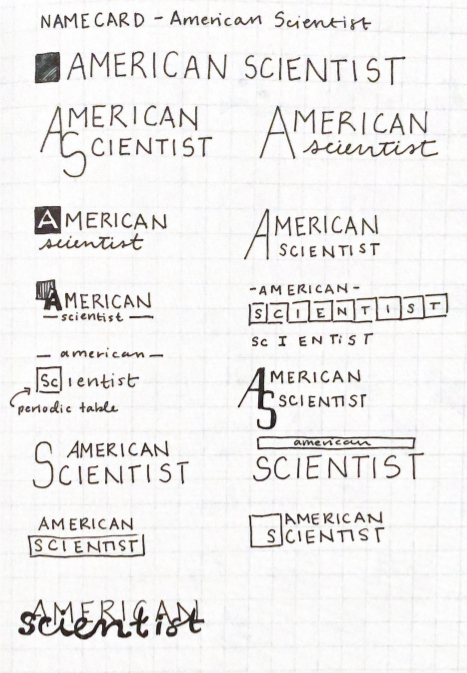 NAMECARD - American Scientist
AMERICAN SCIENTIST
AMERICAN
SCIENTIST
AMERICAN
scientist
AMERICAN
scientist
AMERICAN
SCIENTIST
AMERICAN
- scientist -
- AMERICAN -
SCIENTIST
Sc I EN Ti S T
- american -
Scientist
periodic table
AMERICAN
SCIENTIST
AMERICAN
SCIENTIST
american
SCIENTIST
AMERICAN
SCIENTIST
AMERICAN
SCIENTIST
AMERICAN
scientist